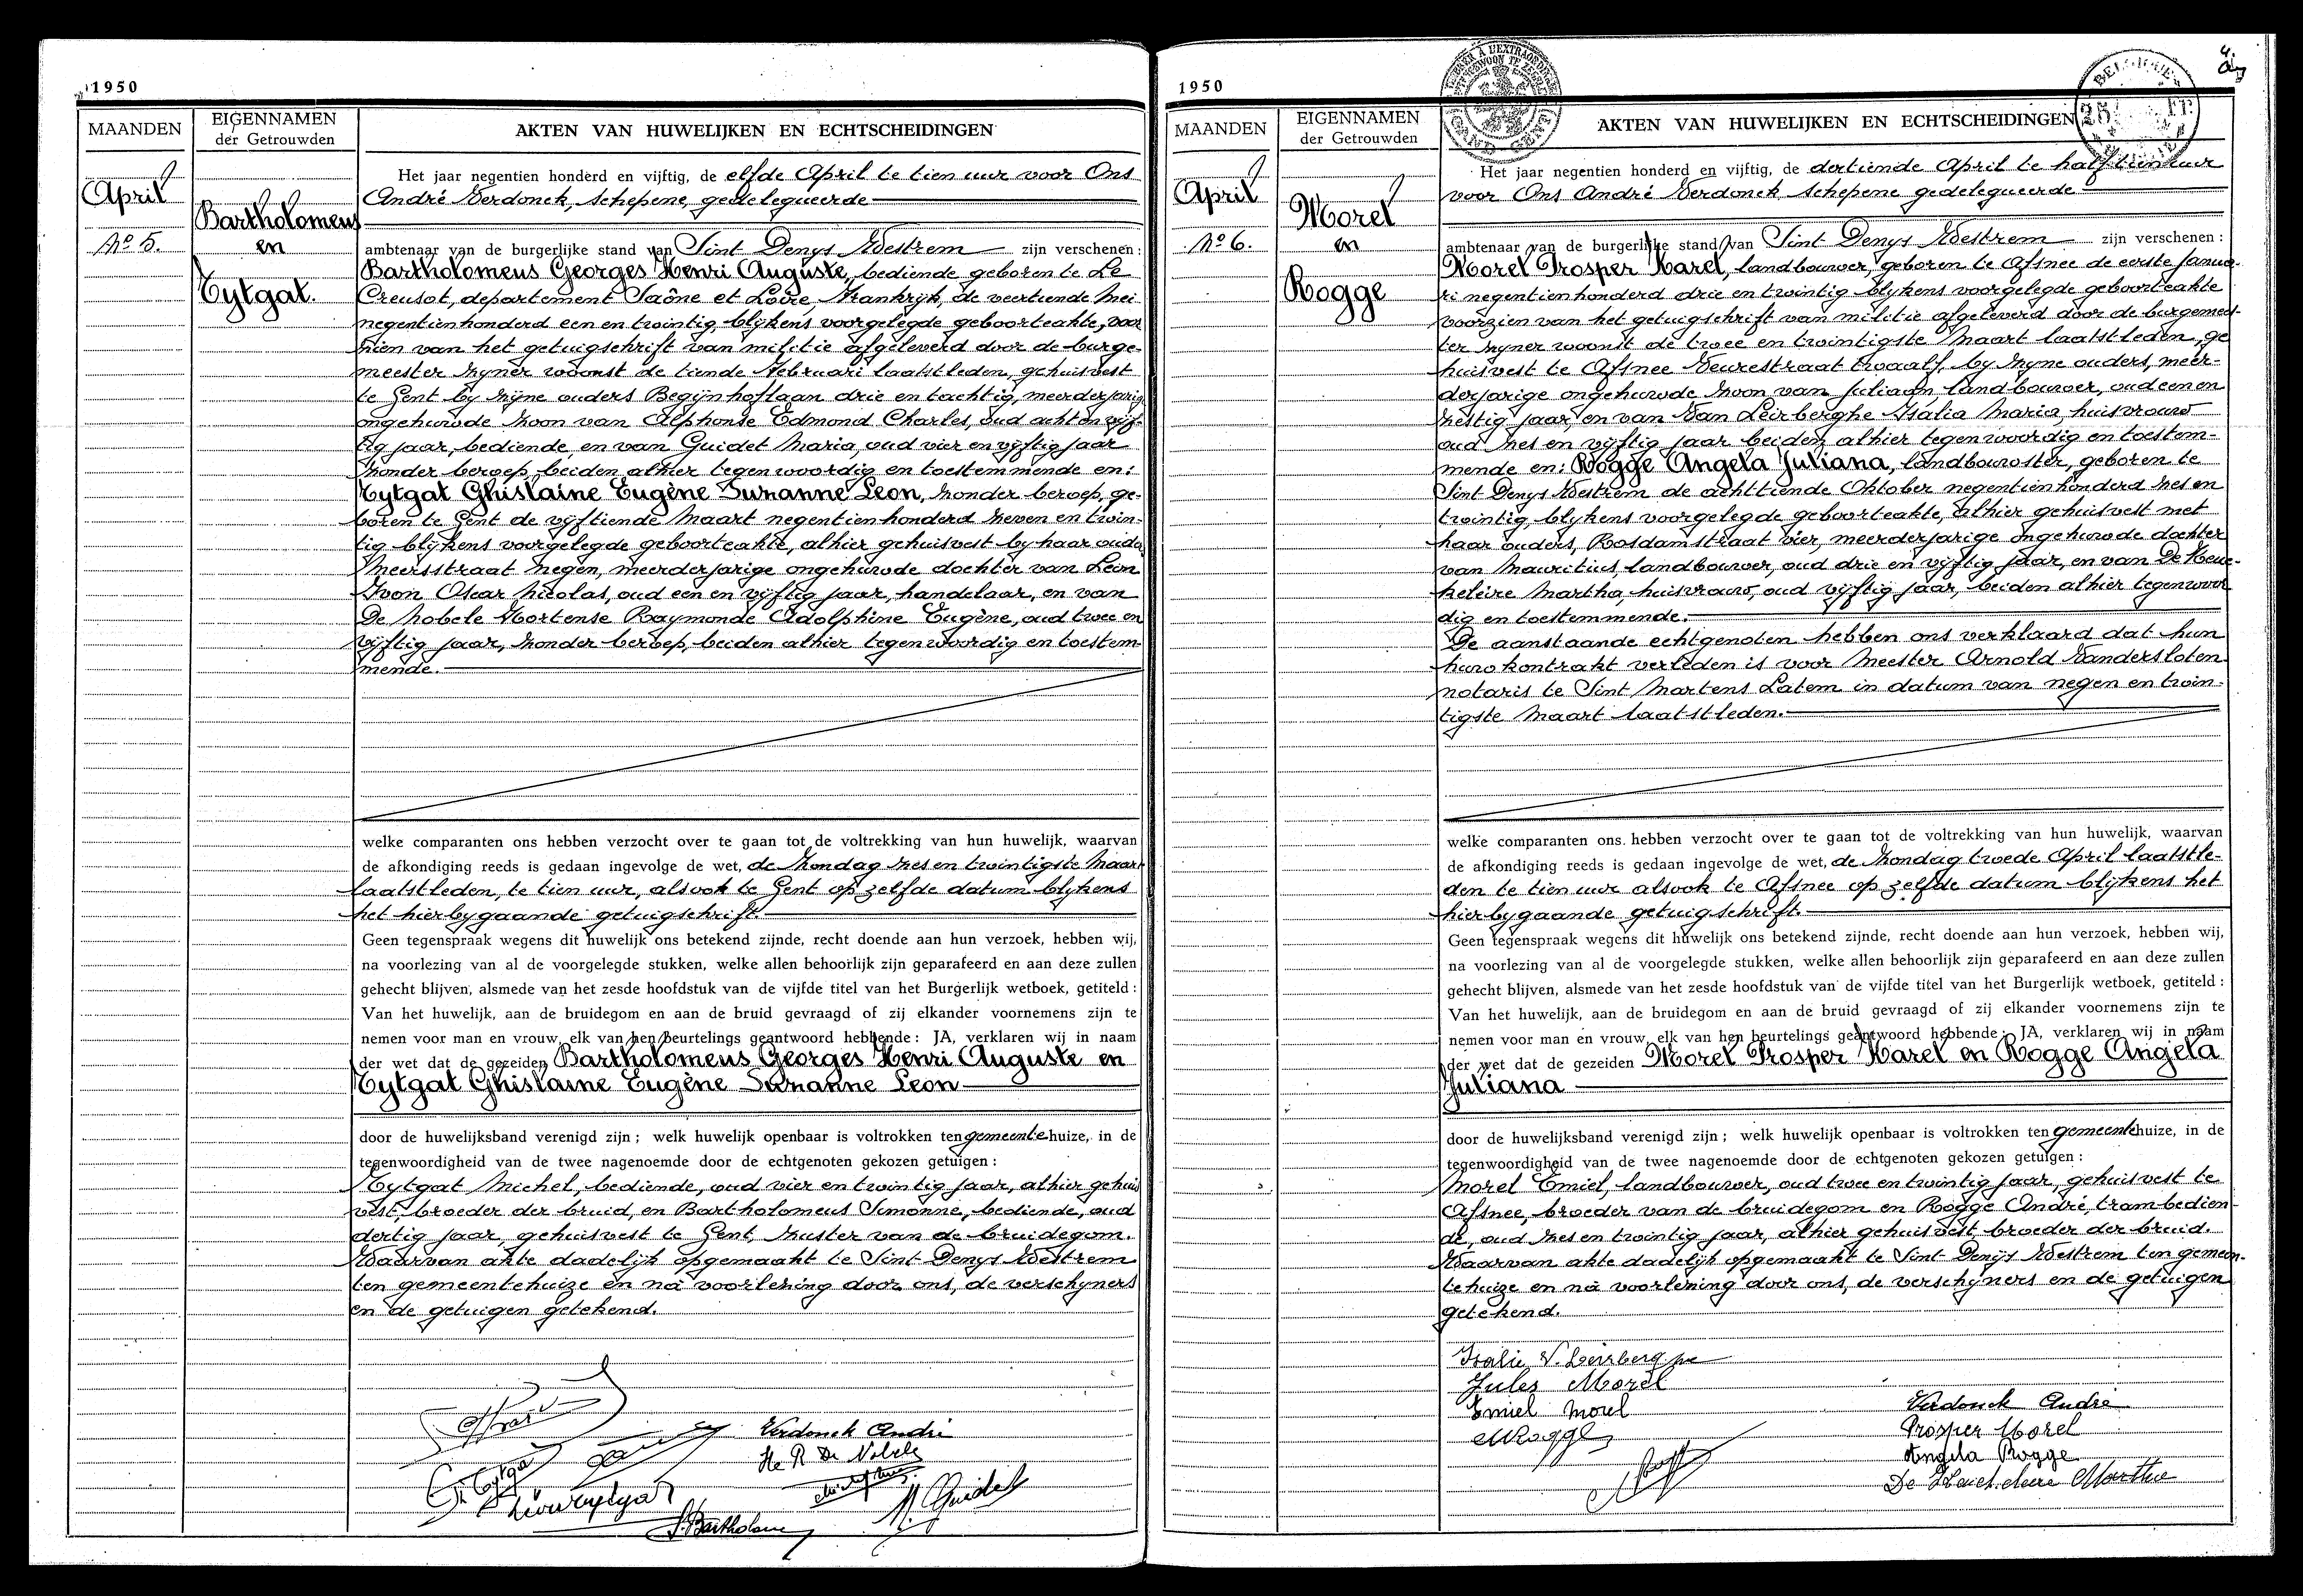 1950
MAANDEN
EIGENNAMEN
der Getrouwden
AKTEN VAN HUWELIJKEN EN ECHTSCHEIDINGEN
April
No 5.
Bartholomeus
en
Eytgat.
Het jaar negentien honderd en vijftig, de elfde April te tien uur voor Ons
André Verdonck, schepene, gedelegueerde
ambtenaar van de burgerlijke stand van Sint Denys Westrem zijn verschenen:
Bartholomeus Georges Henri Auguste, bediende geboren te Le
Creusot, departement Saône et Loire, Frankrijk, de veertiende Mei
negentienhonderd een en twintig, blijkens voorgelegde geboorteakte, voor
zien van het getuigschrift van militie afgeleverd door de burge-
meester zijner woonst de tiende Februari laatstleden, gehuisvest
te Gent bij zijne ouders Begijnhoflaan drie en tachtig, meerderjarig
ongehuwde zoon van Alphonse Edmond Charles, oud acht en vijf-
tig jaar, bediende, en van Guidet Maria, oud vier en vijftig jaar
zonder beroep, beiden alhier tegenwoordig en toestemmende en:
Eytgat Ghislaine Eugène Suzanne Leon, zonder beroep, ge-
boren te Gent de vijftiende Maart negentienhonderd zeven en twin-
tig blijkens voorgelegde geboorteakte, alhier gehuisvest by haar ouders
Meersstraat negen, meerderjarige ongehuwde dochter van Leon
Ivon Oscar Nicolas, oud een en vijftig jaar, handelaar, en van
De Nobele Hortense Raymonde Adolphine Eugène, oud twee en
vijftig jaar, zonder beroep, beiden alhier tegenwoordig en toestem-
mende.
welke comparanten ons hebben verzocht over te gaan tot de voltrekking van hun huwelijk, waarvan
de afkondiging reeds is gedaan ingevolge de wet, de Zondag zes en twintigste Maart
laatstleden, te tien uur, alsook te Gent op zelfde datum blijkens
het hierbygaande getuigschrift.
Geen tegenspraak wegens dit huwelijk ons betekend zijnde, recht doende aan hun verzoek, hebben wij,
na voorlezing van al de voorgelegde stukken, welke allen behoorlijk zijn geparafeerd en aan deze zullen
gehecht blijven, alsmede van het zesde hoofdstuk van de vijfde titel van het Burgerlijk wetboek, getiteld:
Van het huwelijk, aan de bruidegom en aan de bruid gevraagd of zij elkander voornemens zijn te
nemen voor man en vrouw, elk van hen beurtelings geantwoord hebbende: JA, verklaren wij in naam
der wet dat de gezeiden Bartholomeus Georges Henri Auguste en
Eytgat Ghislaine Eugène Suzanne Leon
door de huwelijksband verenigd zijn; welk huwelijk openbaar is voltrokken ten gemeentehuize, in de
tegenwoordigheid van de twee nagenoemde door de echtgenoten gekozen getuigen:
Eytgat Michel, bediende, oud vier en twintig jaar, alhier gehuis
vest, broeder der bruid, en Bartholomeus Simonne, bediende, oud
dertig jaar, gehuisvest te Gent, zuster van de bruidegom.
Waarvan akte dadelijk opgemaakt te Sint Denys Westrem
ten gemeentehuize en nà voorlezing door ons, de verschijners
en de getuigen getekend.
Verdonck André
He R De Nobele
G. Eytgat
M. Guidet
S. Bartholomeus
1950
MAANDEN
EIGENNAMEN
der Getrouwden
AKTEN VAN HUWELIJKEN EN ECHTSCHEIDINGEN
April
No 6.
Morel
en
Rogge
Het jaar negentien honderd en vijftig, de dertiende April te half tien uur
voor Ons André Verdonck schepene gedelegueerde
ambtenaar van de burgerlijke stand van Sint Denys Westrem zijn verschenen:
Morel Prosper Karel, landbouwer, geboren te Afsnee de eerste Janua-
ri negentienhonderd drie en twintig blijkens voorgelegde geboorteakte
voorzien van het getuigschrift van militie afgeleverd door de burgemees-
ter zijner woonst de twee en twintigste Maart laatstleden, ge
huisvest te Afsnee Veurestraat twaalf, by zijne ouders, meer-
derjarige ongehuwde zoon van Juliaan landbouwer, oud een en
zestig jaar, en van Van Leirberghe Isalia Maria, huisvrouw
oud zes en vijftig jaar beiden alhier tegenwoordig en toestem-
mende en: Rogge Angela Juliana, landbouwster, geboren te
Sint Denys Westrem de achttiende Oktober negentienhonderd zes en
twintig, blijkens voorgelegde geboorteakte, alhier gehuisvest met
haar ouders, Rosdamstraat vier, meerderjarige ongehuwde dochter
van Mauritius, landbouwer, oud drie en vijftig jaar, en van De Keuc-
keleire Martha, huisvrouw, oud vijftig jaar, beiden alhier tegenwoor
dig en toestemmende.
De aanstaande echtgenoten hebben ons verklaard dat hun
huwkontrakt verleden is voor Meester Arnold Vandersloten
notaris te Sint Martens Latem in datum van negen en twin-
tigste Maart laatstleden.
welke comparanten ons hebben verzocht over te gaan tot de voltrekking van hun huwelijk, waarvan
de afkondiging reeds is gedaan ingevolge de wet, de Zondag twede April laatstle-
den te tien uur alsook te Afsnee op zelfde datum blijkens het
hierbygaande getuigschrift.
Geen tegenspraak wegens dit huwelijk ons betekend zijnde, recht doende aan hun verzoek, hebben wij,
na voorlezing van al de voorgelegde stukken, welke allen behoorlijk zijn geparafeerd en aan deze zullen
gehecht blijven, alsmede van het zesde hoofdstuk van de vijfde titel van het Burgerlijk wetboek, getiteld:
Van het huwelijk, aan de bruidegom en aan de bruid gevraagd of zij elkander voornemens zijn te
nemen voor man en vrouw, elk van hen beurtelings geantwoord hebbende: JA, verklaren wij in naam
der wet dat de gezeiden Morel Prosper Karel en Rogge Angela
Juliana
door de huwelijksband verenigd zijn; welk huwelijk openbaar is voltrokken ten gemeentehuize, in de
tegenwoordigheid van de twee nagenoemde door de echtgenoten gekozen getuigen:
Morel Emiel, landbouwer, oud twee en twintig jaar, gehuisvest te
Afsnee, broeder van de bruidegom en Rogge André, trambedien-
de, oud zes en twintig jaar, alhier gehuisvest, broeder der bruid.
Waarvan akte dadelijk opgemaakt te Sint Denijs Westrem ten gemeen-
tehuize en nà voorlezing door ons, de verschijners en de getuigen
getekend.
Jules Morel
Emiel Morel
M Rogge
Verdonck André
Prosper Morel
Angela Rogge